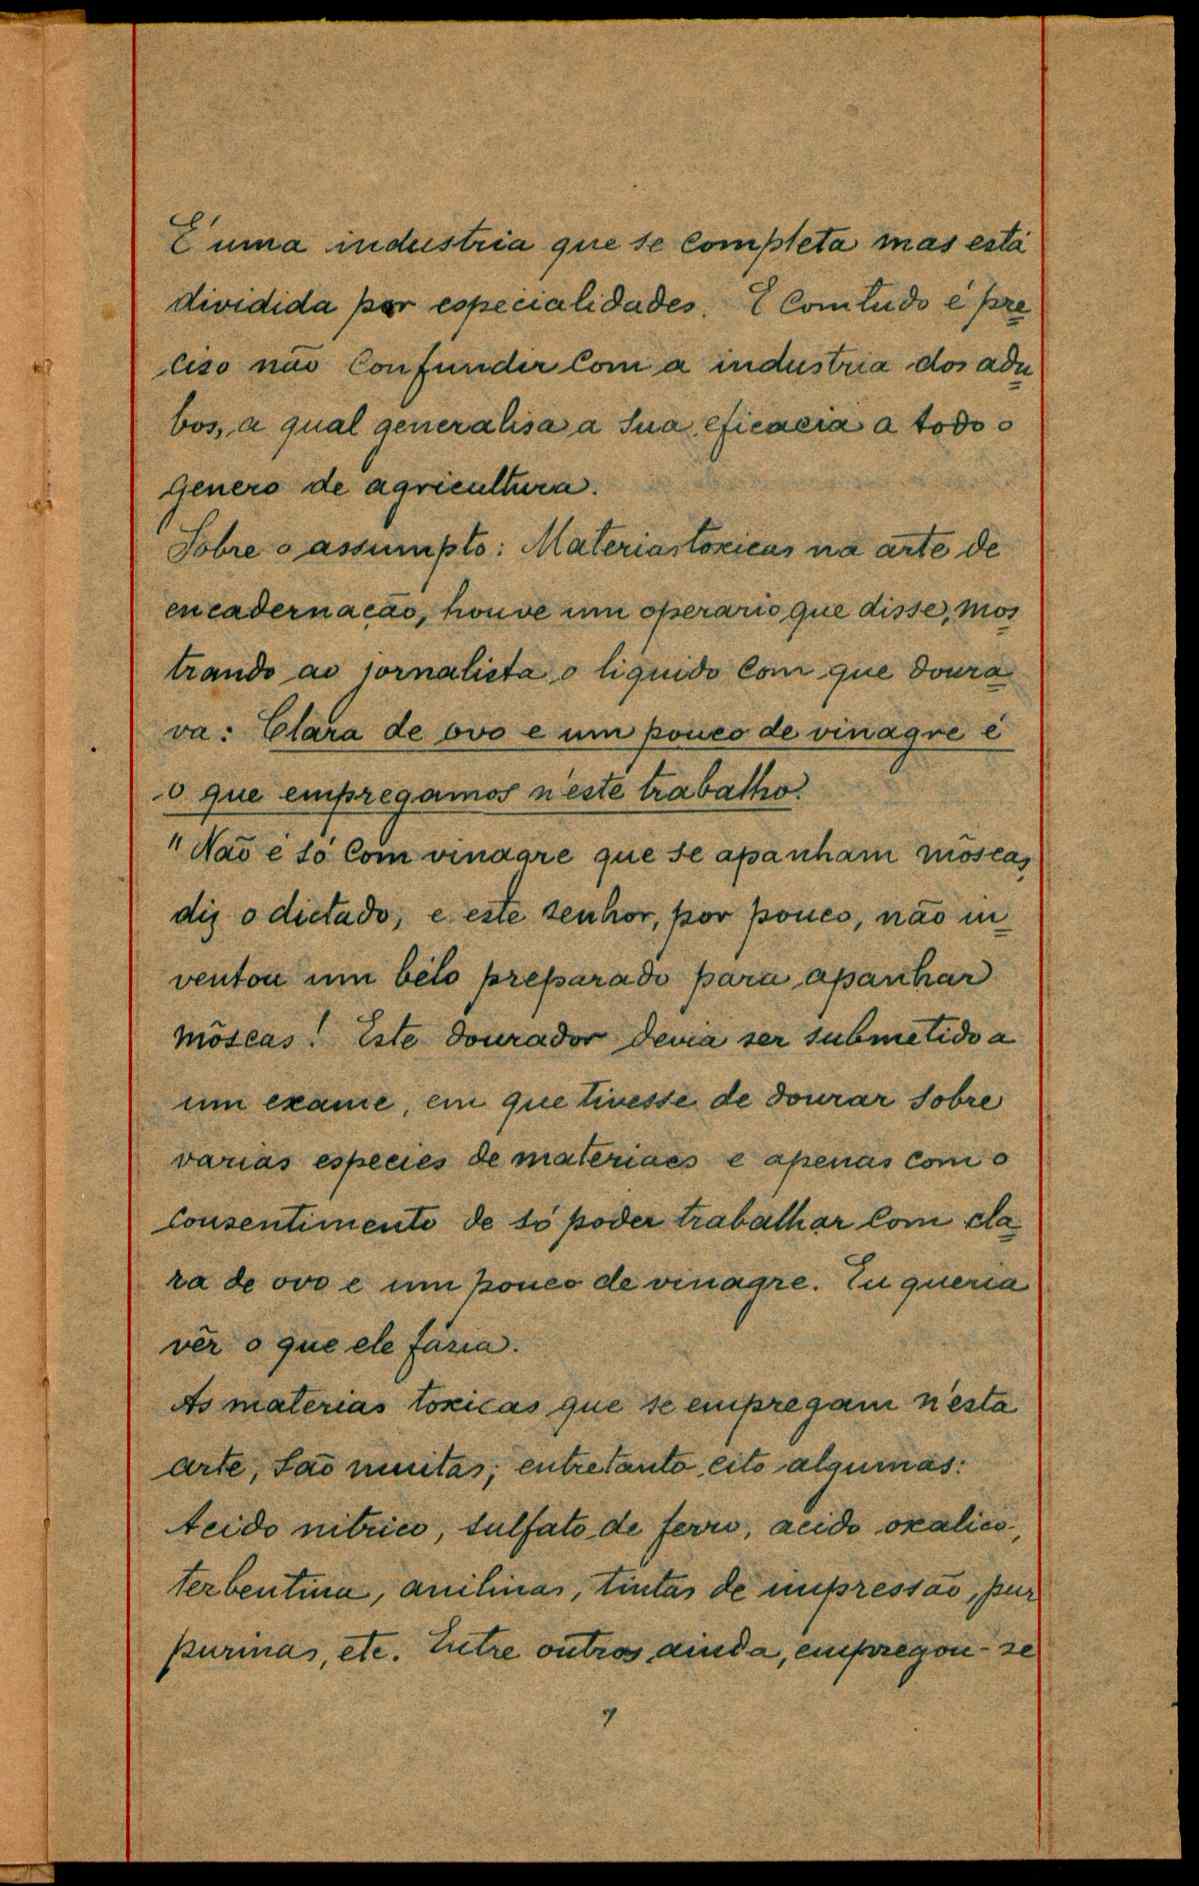 É uma industria que se completa mas está
dividida por especialidades. E comtudo é pre
ciso não confundir com a industria dos adu
bos, a qual generalisa a sua eficacia a todo o
genero de agricultura.
Sobre o assumpto: Materias toxicas na arte de
encadernação, houve um operario que disse, mos
trando ao jornalista o liquido com que doura
va: Clara de ovo e um pouco de vinagre é
o que empregamos n'este trabalho.
"Não é só com vinagre que se apanham môscas,
diz o dictado, e este senhor, por pouco, não in
ventou um bélo preparado para apanhar
môscas! Este dourador devia ser submetido a
um exame, em que tivesse de dourar sobre
varias especies de materiaes e apenas com o
consentimento de só poder trabalhar com cla
ra de ovo e um pouco de vinagre. Eu queria
vêr o que ele faria.
As materias toxicas que se empregam n'esta
arte, são muitas; entretanto cito algumas:
Acido nitrico, sulfato de ferro, acido oxalico,
terbentina, anilinas, tintas de impressão, pur
purinas, etc. Entre outros ainda, empregou-se
7